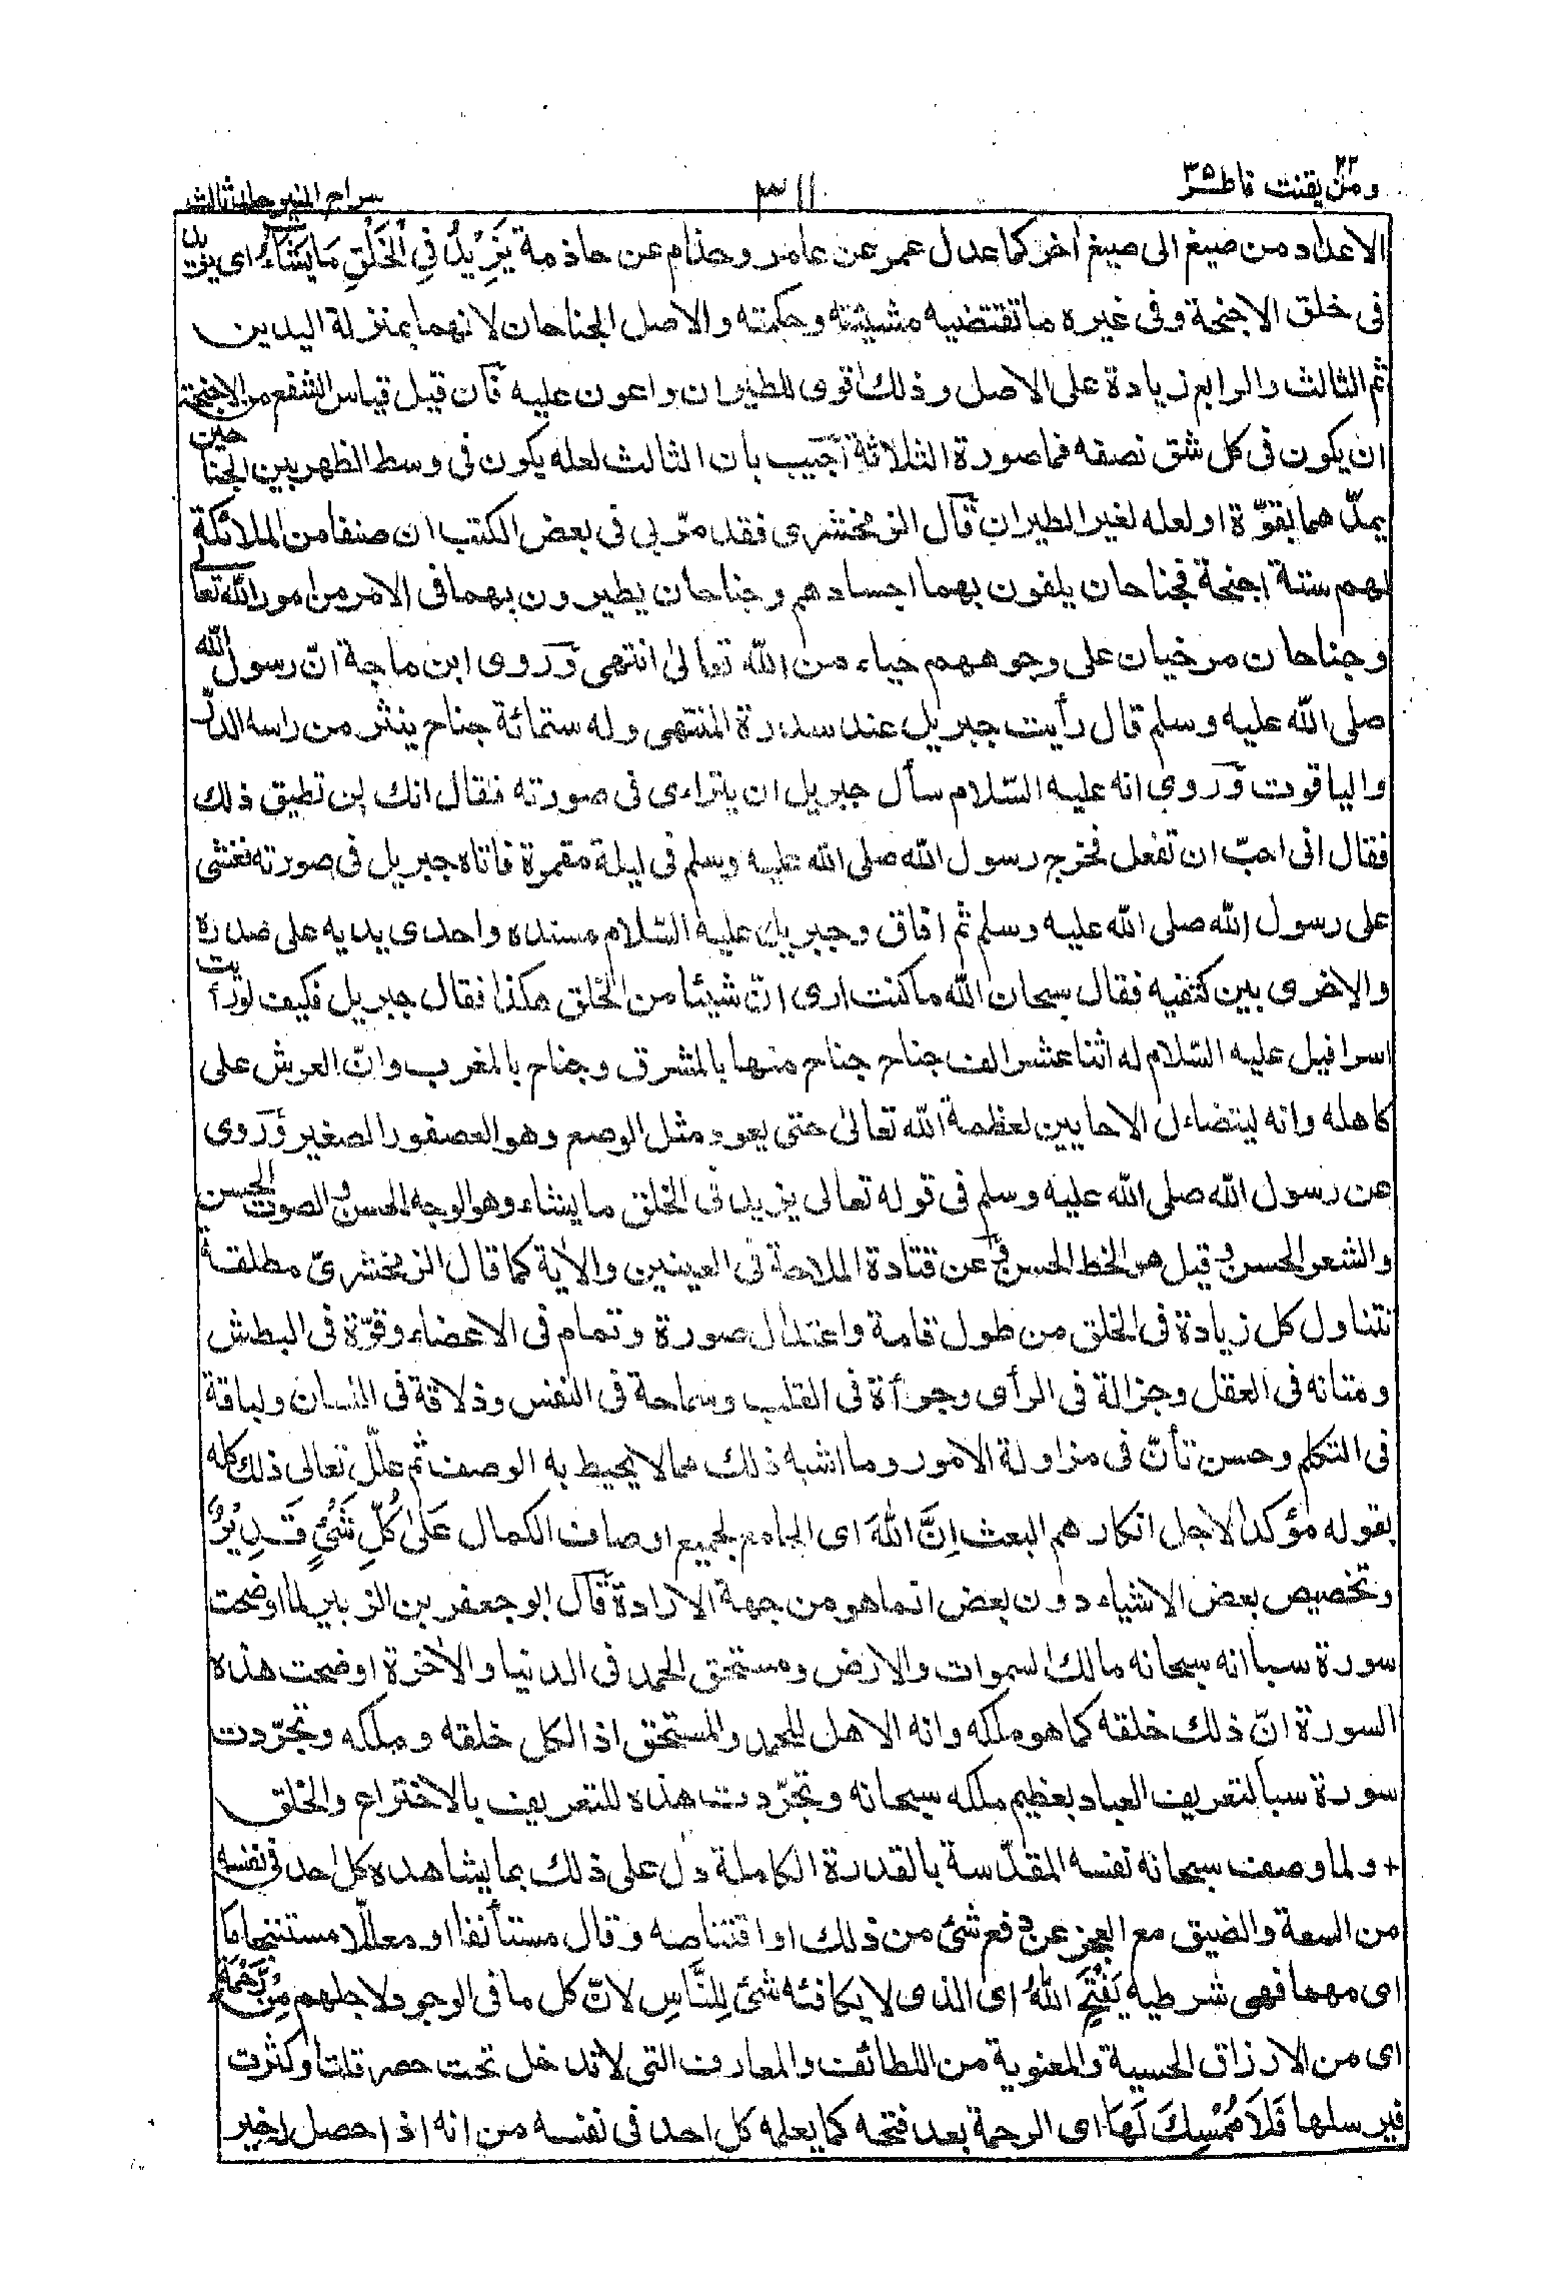 ومن يقنت ٢٢ فاطر ٣٥
٣١١
سراج المنير جلد ثالث
الاعداد من صيغ الى صيغ اخر كما عدل عمر عن عامر وحذام عن حاذمة يَزِيْدُ فِي الْخَلْقِ مَا يَشَاءُ اى يزيد
فى خلق الاجنحة وفى غيره ما تقتضيه مشيئته وحكمته والاصل الجناحان لانهما بمنزلة اليدين
ثم الثالث والرابع زيادة على الاصل وذلك اقوى للطيران واعون عليه فان قيل قياس الشفع من الاجنحة
ان يكون فى كل شق نصفه فما صورة الثلاثة اجيب بان الثالث لعله يكون فى وسط الظهر بين الجناحين
يمدّهما بقوّة او لعله لغير الطيران قال الزمخشرى فقد مرّ بى فى بعض الكتب ان صنفا من الملائكة
لهم ستة اجنحة فجناحان يلفون بهما اجسادهم وجناحان يطيرون بهما فى الامر من امور الله تعالى
وجناحان مرخيان على وجوههم حياء من الله تعالىٰ انتهى وروى ابن ماجة انّ رسول الله
صلى الله عليه وسلم قال رأيت جبريل عند سدرة المنتهى وله ستمائة جناح ينثر من راسه الدرّ
والياقوت وروى انه عليه السّلام سأل جبريل ان يتراءى فى صورته فقال انك لن تطيق ذلك
فقال انى احبّ ان تفعل فخرج رسول الله صلى الله عليه وسلم فى ليلة مقمرة فاتاه جبريل فى صورته فغشى
على رسول الله صلى الله عليه وسلم ثم افاق وجبريل عليه السّلام مسنده واحدى يديه على صدره
والاخرى بين كتفيه فقال سبحان الله ما كنت ارى انّ شيئا من الخلق هكذا فقال جبريل فكيف لو رأيت
اسرافيل عليه السّلام له اثنا عشر الف جناح جناح منها بالمشرق وجناح بالمغرب وانّ العرش على
كاهله وانه ليتضاءل الاحايين لعظمة الله تعالىٰ حتى يعود مثل الوصع وهو العصفور الصغير وروى
عن رسول الله صلى الله عليه وسلم فى قوله تعالى يزيد فى الخلق ما يشاء وهو الوجه الحسن والصوت الحسن
والشعر الحسن وقيل هو الخط الحسن وعن قتادة الملاحة فى العينين والاٰية كما قال الزمخشرىّ مطلقة
تتناول كل زيادة فى الخلق من طول قامة واعتدال صورة وتمام فى الاعضاء وقوّة فى البطش
ومتانه فى العقل وجزالة فى الرأى وجرأة فى القلب وسماحة فى النفس وذلاقة فى اللسان ولباقة
فى التكلم وحسن تأنّ فى مزاولة الامور وما اشبه ذلك مما لا يحيط به الوصف ثم علّل تعالى ذلك كله
بقوله مؤكدا لاجل انكارهم البعث اِنَّ اللهَ اى الجامع لجميع اوصاف الكمال عَلىٰ كُلِّ شَىْءٍ قَدِيْرٌ
وتخصيص بعض الاشياء دون بعض انما هو من جهة الارادة قال ابو جعفر بن الزبير لما اوضحت
سورة سبا انه سبحانه مالك السموات والارض ومستحق الحمد فى الدنيا والاٰخرة اوضحت هذه
السورة انّ ذلك خلقه كما هو ملكه وانه الاهل للحمد والمستحق اذ الكل خلقه وملكه وتجرّدت
سورة سبا لتعريف العباد بعظيم ملكه سبحانه وتجرّدت هذه للتعريف بالاختراع والخلق
+ ولما وصف سبحانه نفسه المقدّسة بالقدرة الكاملة دل على ذلك بما يشاهده كل احد فى نفسه
من السعة والضيق مع العجز عن دفع شئ من ذلك او اقتناصه وقال مستأنفا او معللا مستنتجا مَا
اى مهما فهى شرطية يَفْتَحِ اللهُ اى الذى لا يكافئه شئ لِلنَّاسِ لانّ كل ما فى الوجود لاجلهم مِنْ رَّحْمَةٍ
اى من الارزاق الحسية والمعنوية من اللطائف والمعارف التى لا تدخل تحت حصر قلت او كثرت
فيرسلها فَلَا مُمْسِكَ لَهَا اى الرحمة بعد فتحه كما يعلمه كل احد فى نفسه من انه اذا حصل له خير